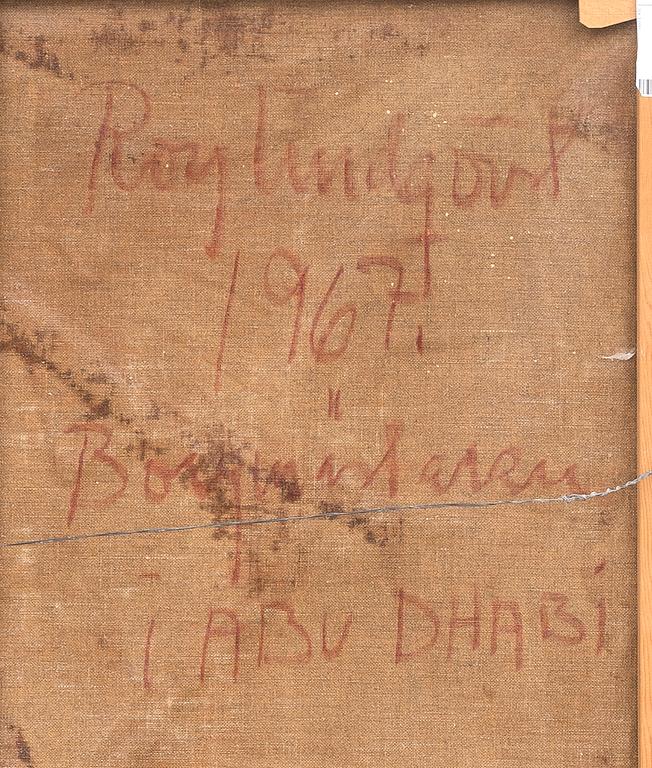 Roy Lindqvist
1967.
"
Borgmästaren
i ABU DHABi